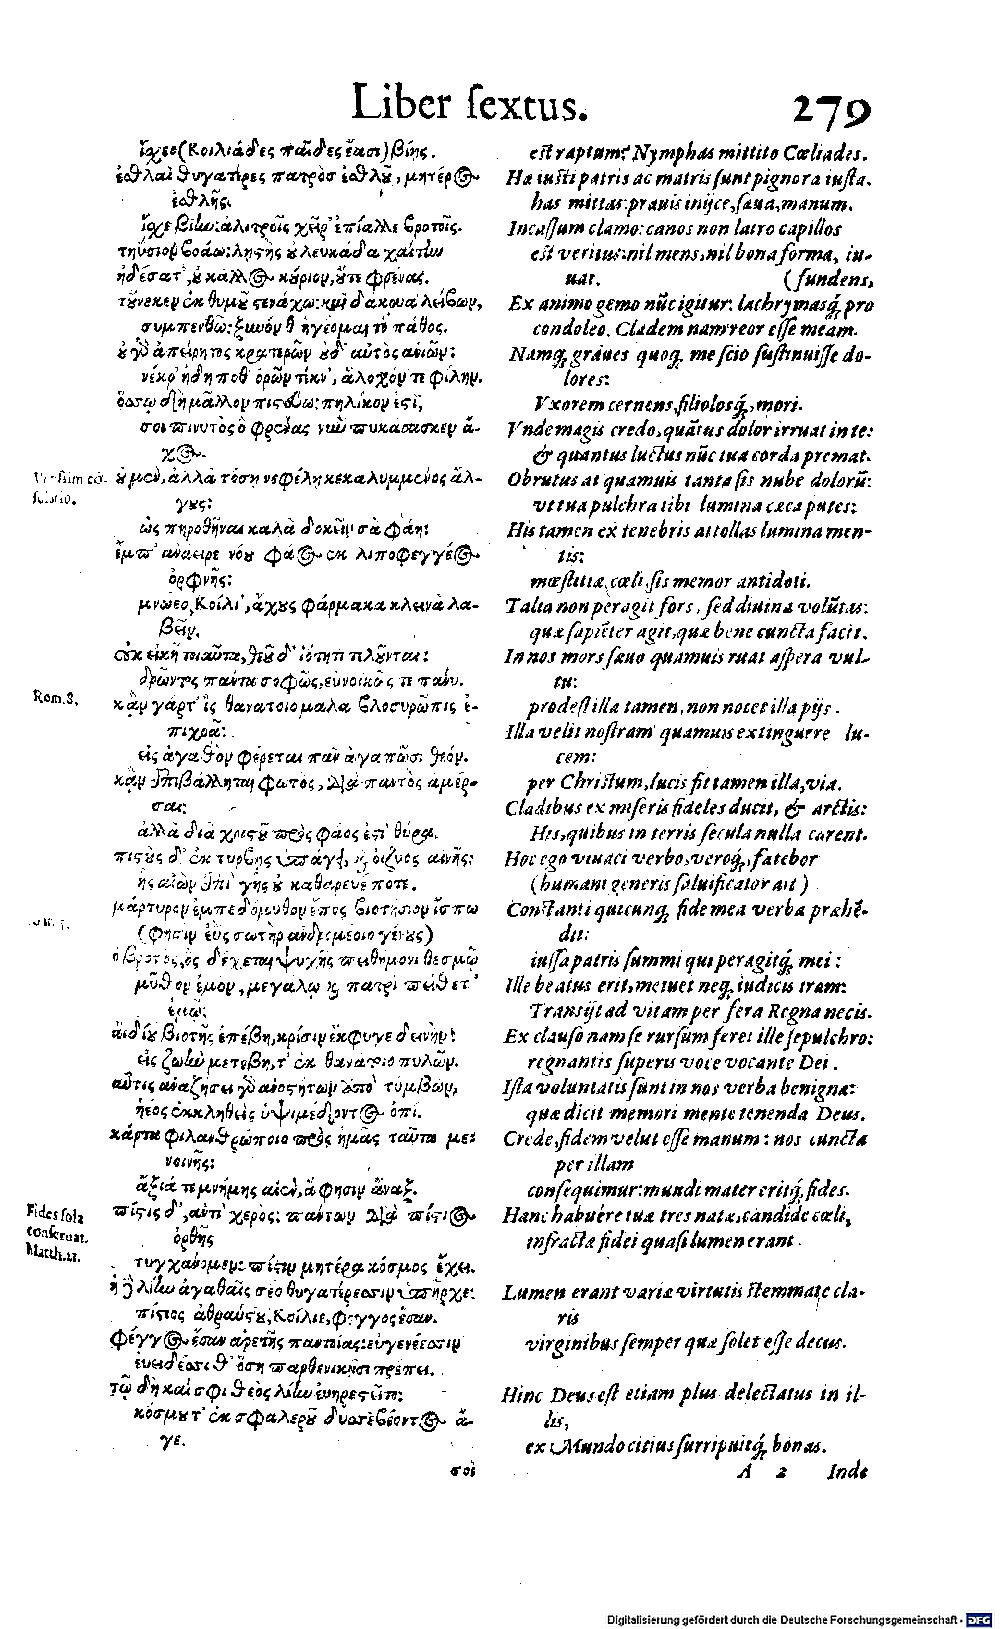 Liber ſextus. 279
ἴχεο (Κοιλιάδες παῖδες ἔασι) βίης.
ἐσθλαὶ θυγατέρες πατρὸς ἐσθλοῦ, μητέρος
ἐσθλῆς.
ἴχε βίω: ἀλιτροῖς χεῖρ' ἐπίαλλε βροτοῖς.
τηΰσιον βοάω: λῃστὴς οὐ λευκάδα χαίτην
ᾐδέσατ', οὐ κάλλος κύριον, οὔτε φρένας.
τοὔνεκεν ἐκ θυμοῦ στενάχω: καὶ δάκρυα λείβων,
συμπενθῶ: ξυνόν θ' ἡγέομαι τὸ πάθος.
οὐ γὰρ ἀπείρητος κρατερῶν οὐδ' αὐτὸς ἀνιῶν:
νέκρ' ἤδη ποθ' ὁρῶν τέκν', ἄλοχόν τε φίλην.
ὅσσῳ δὴ μᾶλλον πιστεύω: πηλίκον ἐστί,
σοι πινυτὸς ὃ φρένας νῦν πυκάσασκεν ἄ-
χος.
οὐ μὲν, ἀλλὰ τόσῃ νεφέλῃ κεκαλυμμένος ἄλ-
γους:
ὡς πηρωθῆναι καλὰ δοκεῖν σὰ φάη:
ἔμπ' ἀνάειρε νόου φάος ἐκ λιποφεγγέος
ὀρφνῆς:
μνώεο, Κοίλι', ἄχους φάρμακα κλεινὰ λα-
βεῖν.
οὐκ εἰκῆ τοιαῦτα, θεοῦ δ' ἰότητι πελοῦνται:
δρῶντος πάντα σοφῶς, εὐνοικῶς τε πάνυ.
κἂν γάρ τ' εἰς θανάτοιο μάλα βλοσυρῶπις ἐ-
πιχρᾷ:
εἰς ἀγαθὸν φέρεται πᾶν ἀγαπῶσι θεόν.
κἂν ἐπιβάλληται φωτὸς, διὰ παντὸς ἀμέρ-
σαι:
ἀλλὰ διὰ χριστοῦ πρὸς φάος ἐστὶ θύρα.
πιστοὺς δ' ἐκ τύρβης ὑπάγει, καὶ ὀϊζύος αἰνῆς:
ἧς αἰὼν ἐπὶ γῆς οὐ καθαρεύει ποτε.
μάρτυρον ἐμπεδόμυθον ἔπος βιοτήσιον ἴσπω
(φησὶν ἐῢς σωτὴρ ἀνδρομέοιο γένους)
ὁ βροτὸς, ὃς δέχεται ψυχῆς πειθήμονι θεσμῷ
μῦθον ἐμὸν, μεγάλῳ καὶ πατρὶ πείθετ'
ἐμῷ:
ἀϊδίου βιοτῆς ἐπέβη, κρίσιν ἔκφυγε δεινήν!
εἰς ζωὴν μετέβη, τ' ἐκ θανάτοιο πυλῶν.
αὖτις ἀναζήσει γὰρ ἀνοιγέντων ἀπὸ τύμβων,
κάρτα φιλανθρώποιο πρὸς ἡμᾶς ταῦτα με-
νοινῆς:
ἄξιά τε μνήμης αἰὲν, ἅ φησιν ἄναξ.
πίστις δ', ἀντὶ χερός: πάντων διὰ πίστεος
ὀρθῆς
τυγχάνομεν: πίστιν μητέρα κόσμος ἔχει.
ἣ γὰρ λίην ἀγαθαῖς σέο θυγατέρεσσιν ὑπῆρχε:
πίστιος ἀθραύστου, Κοίλιε, φέγγος ἔσαν.
φέγγος ἔσαν ἀρετῆς παντοίας: εὐγενέεσσιν
εὐειδέσσι θ' ὅση παρθενικῇσι πρέπει.
τῷ δὴ καί σφι θεὸς λίην ἐνηρέστει:
κόσμου τ' ἐκ σφαλεροῦ δυσσεβέοντος ἄ-
γε.
σοὶ
Rom. 8.
Fides ſola
conſeruat.
Matth. 21.
eſt raptum? Nymphas mittito Cœliades.
Ha iuſti patris ac matris ſunt pignora iuſta.
has mittas: prauis inijce, ſaua, manum.
Incaſſum clamo: canos non latro capillos
eſt veritus: nil mens, nil bona forma, iu-
uat. (fundens,
Ex animo gemo nũc igitur: lachrymasq́; pro
condoleo. Cladem nam reor eſſe meam.
Namq́; graues quoq́; me ſcio ſuſtinuiſſe do-
lores:
Vxorem cernens, filiolosq́;, mori.
Vnde magis credo, quãtus dolor irruat in te:
& quantus luctus nũc tua corda premat.
Obrutus at quamuis tanta ſis nube dolorũ:
vt tua pulchra tibi lumina cæca putes:
His tamen ex tenebris attollas lumina men-
tis:
mœſtitiæ, cœli, ſis memor antidoti.
Talia non peragit fors, ſed diuina volũtas:
quæ ſapiẽter agit, quæ bene cuncta facit.
In nos mors ſæuo quamuis ruat aſpera vul-
tu:
prodeſt illa tamen, non nocet illa pijs.
Illa velit noſtram quamuis extinguere lu-
cem:
per Chriſtum, lucis fit tamen illa, via.
Cladibus ex miſeris fideles ducit, & arctis:
His, quibus in terris ſecula nulla carent.
Hoc ego viuaci verbo, veroq́;, fatebor
(humani generis ſaluificator ait)
Conſtanti quicunq́; fide mea verba præhẽ-
dit:
iuſſa patris ſummi qui peragitq́; mei:
Ille beatus erit, metuet neq́; iudicis iram:
Tranſijt ad vitam per fera Regna necis.
Ex clauſo nam ſe rurſum feret ille ſepulchro:
regnantis ſuperis voce vocante Dei.
Iſta voluntatis ſunt in nos verba benignæ:
quæ dicit memori mente tenenda Deus.
Crede, fidem velut eſſe manum: nos cuncta
per illam
conſequimur: mundi mater eritq́; fides.
Hanc habuêre tuæ tres natæ, candide cœli,
infracta fidei quaſi lumen erant.
Lumen erant variæ virtutis ſtemmate cla-
ris
virginibus ſemper quæ ſolet eſſe decus.
Hinc Deus eſt etiam plus delectatus in il-
lis,
ex Mundo citius ſurripuitq́; bonas.
A 2 Inde
Digitalisierung gefördert durch die Deutsche Forschungsgemeinschaft - DFG